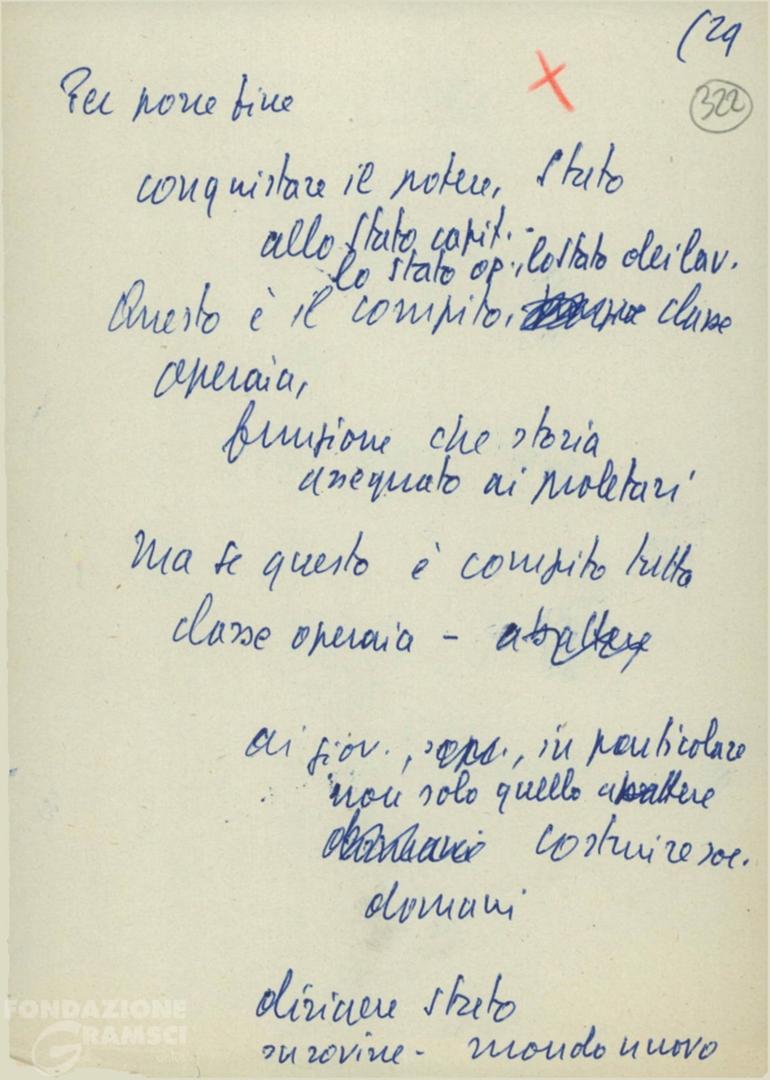 (29
322
Per porre fine
conquistare il potere, Stato
allo Stato capit. -
lo stato op., lo stato dei lav.
Questo è il compito, classe
operaia,
funzione che storia
assegnato ai proletari
Ma se questo è compito tutta
classe operaia - abbattere
ai giov., in particolare
non solo quello abbattere
costruire soc.
domani
dirigere stato
su rovine - mondo nuovo
FONDAZIONE
GRAMSCI